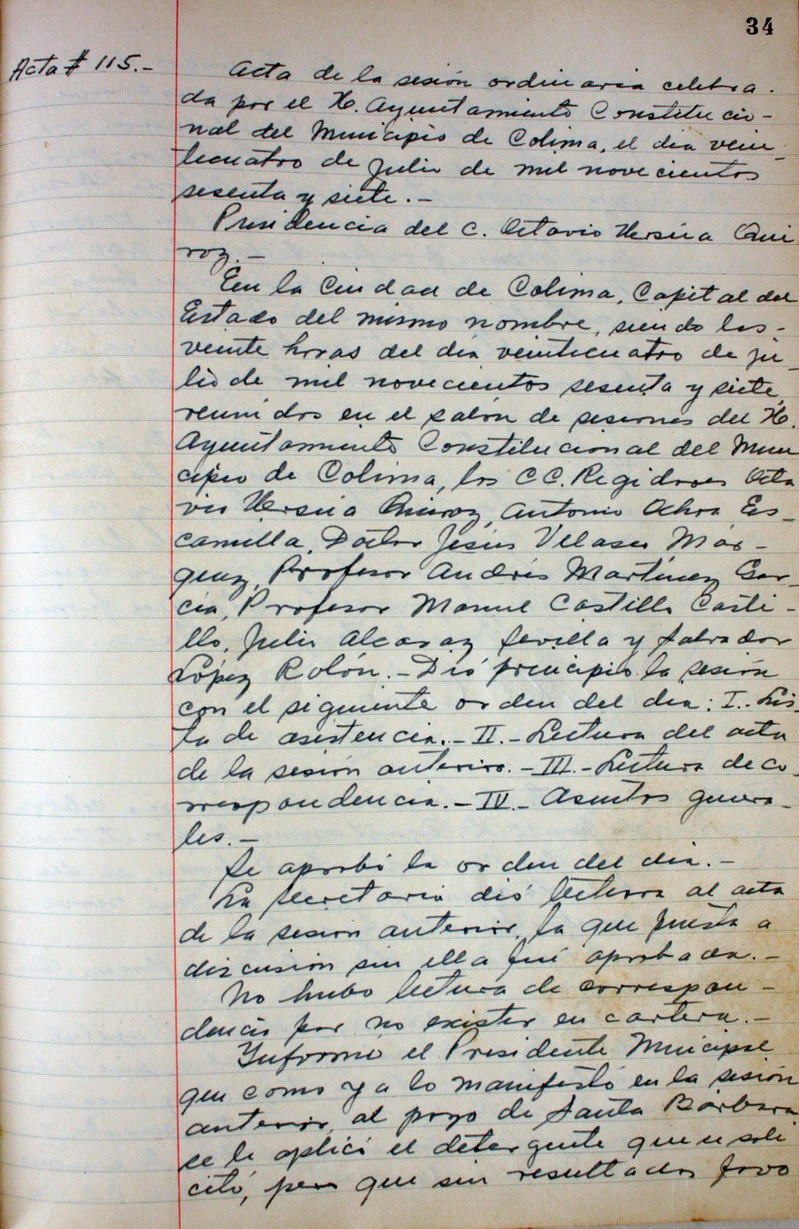 34
Acta # 115.-
Acta de la sesión ordinaria celebra-
da por el H. Ayuntamiento Constitucio-
nal del Municipio de Colima, el día vein-
ticuatro de julio de mil novecientos
sesenta y siete.-
Presidencia del C. Octavio Ursúa Qui
roz.-
En la Ciudad de Colima, Capital del
Estado del mismo nombre, siendo las-
veinte horas del día veinticuatro de ju-
lio de mil novecientos sesenta y siete,
reunidos en el salón de sesiones del H.
Ayuntamiento Constitucional del Muni
cipio de Colima, los CC. Regidores Octa
vio Ursúa Quiroz, Antonio Ochoa Es-
camilla, Doctor Jesús Velasco Már-
quez, Profesor Andrés Martínez Gar-
cía, Profesor Manuel Castillo Casti-
llo, Julio Alcaraz Sevilla y Salvador
López Rolón.- Dió principio la sesión
con el siguiente orden del día: I.- Lis-
ta de asistencia.- II.- Lectura del acta
de la sesión anterior.- III.- Lectura de co-
rrespondencia.- IV.- Asuntos genera-
les.-
Se aprobó la orden del día.-
La Secretaría dió lectura al acta
de la sesión anterior, la que puesta a
discusión sin ella fué aprobada.-
No hubo lectura de correspon-
dencia por no existir en cartera.-
Informó el Presidente Municipal
que como ya lo manifestó en la sesión
anterior, al pozo de Santa Bárbara
se le aplicó el detergente que se soli
citó, pero que sin resultados favo